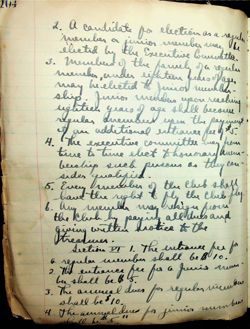 2. A candidate for election as a regular
member or junior member may be
elected by the Executive Committee.
3. Members of the family of a regular
member, under eighteen years of age,
may be elected to junior member-
ship. Junior member upon reaching
eighteen years of age shall become
regular member upon the payment
of an additional entrance fee of $5.
4. The executive committee may from
time to time elect to honorary mem-
bership such persons as they con-
sider qualified.
5. Every member of the Club shall
have the right to fly the Club flag
6. Any member may resign from
the Club by paying all dues and
giving written notice to the
Treasurer.
Section VI 1. The entrance fee for
a regular member shall be $10.
2. The entrance fee for a junior mem-
ber shall be $5.
3. The annual dues for regular members
shall be $10.
4. The annual dues for junior members
shall be $5.